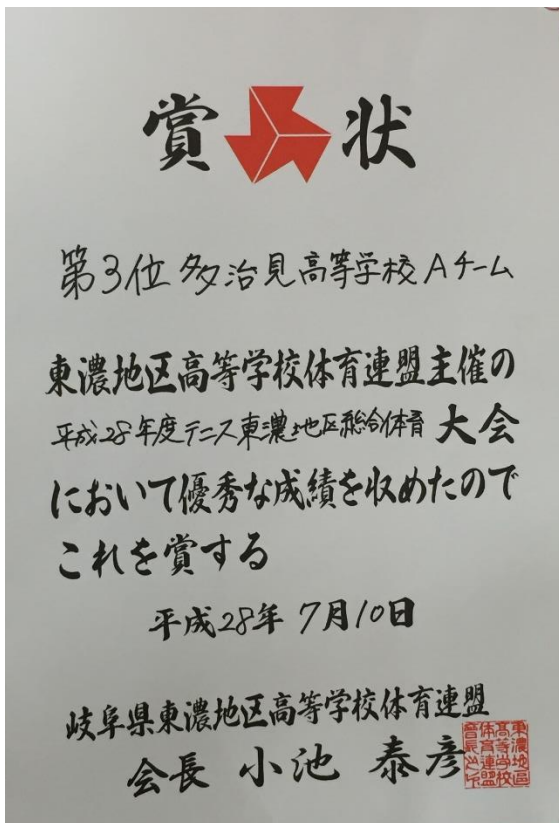 賞状
第3位 多治見高等学校Aチーム
東濃地区高等学校体育連盟主催の
平成28年度テニス東濃地区総合体育 大会
において優秀な成績を収めたので
これを賞する
平成28年 7月10日
岐阜県東濃地区高等学校体育連盟
会長 小池 泰彦
東濃地區
高等学校
体育連盟
會長之印